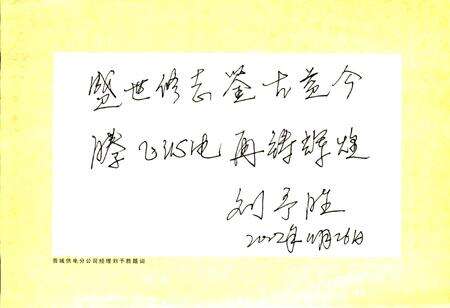 盛世修志 鉴古益今
腾飞电 再铸辉煌
刘予胜
2002年11月26日
晋城供电分公司经理刘予胜题词